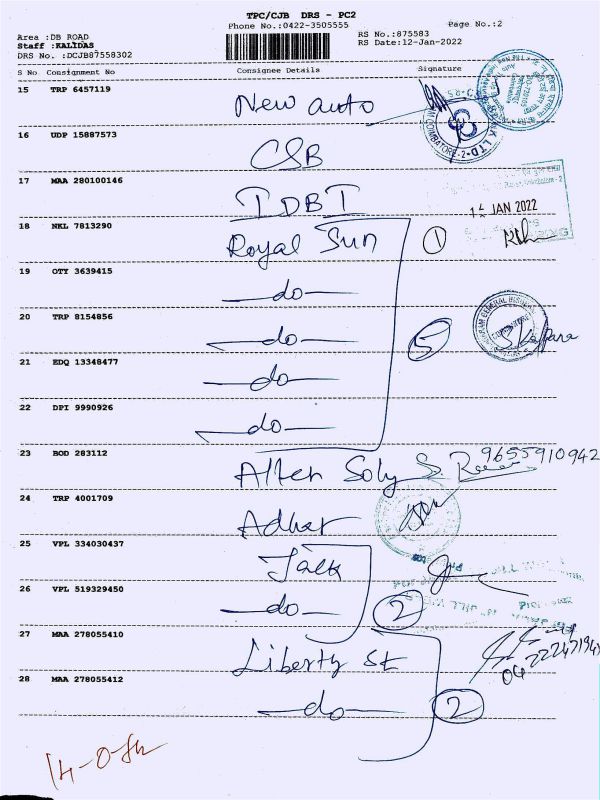 TPC/CJB DRS - PC2
Phone No.:0422-3505555
Page No.:2
Area :DB ROAD
Staff :KALIDAS
DRS No. :DCJB87558302
RS No.:875583
RS Date:12-Jan-2022
S No Consignment No Consignee Details Signature
15 TRP 6457119 New auto
16 UDP 15887573 CSB
17 MAA 280100146 IDBI
14 JAN 2022
18 NKL 7813290 Royal Sun 1
19 OTY 3639415 -do-
20 TRP 8154856 -do- 5
21 EDQ 13348477 -do-
22 DPI 9990926 -do-
23 BOD 283112 Allen Soly 9655910942
24 TRP 4001709 Adhar
25 VPL 334030437
26 VPL 519329450 -do- 2
27 MAA 278055410 Liberty St
28 MAA 278055412 -do- 2